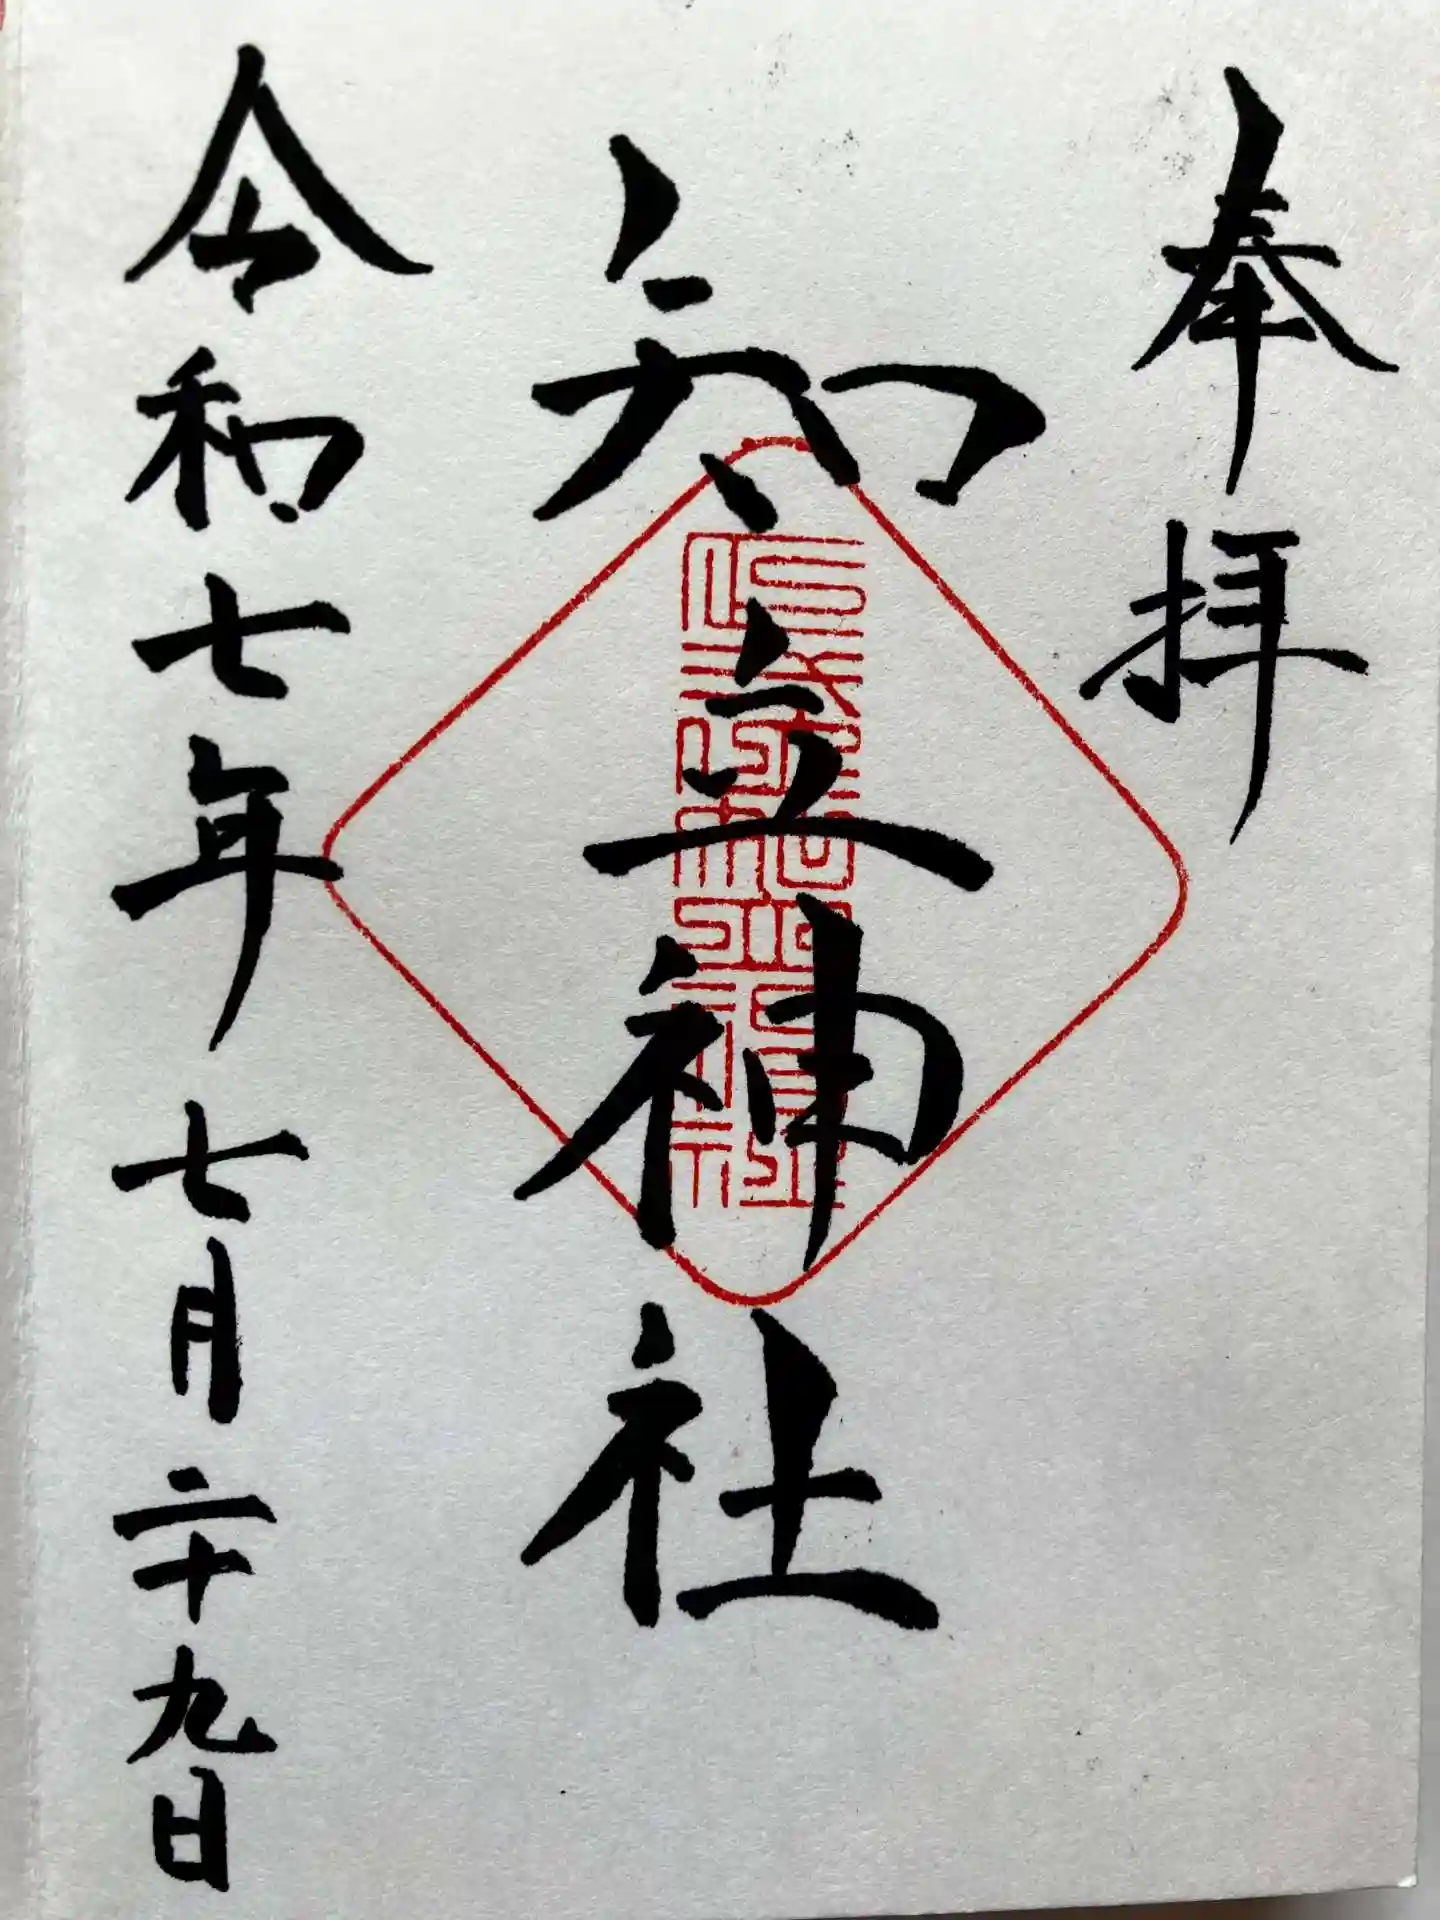 奉拝
知立神社
令和七年七月二十九日